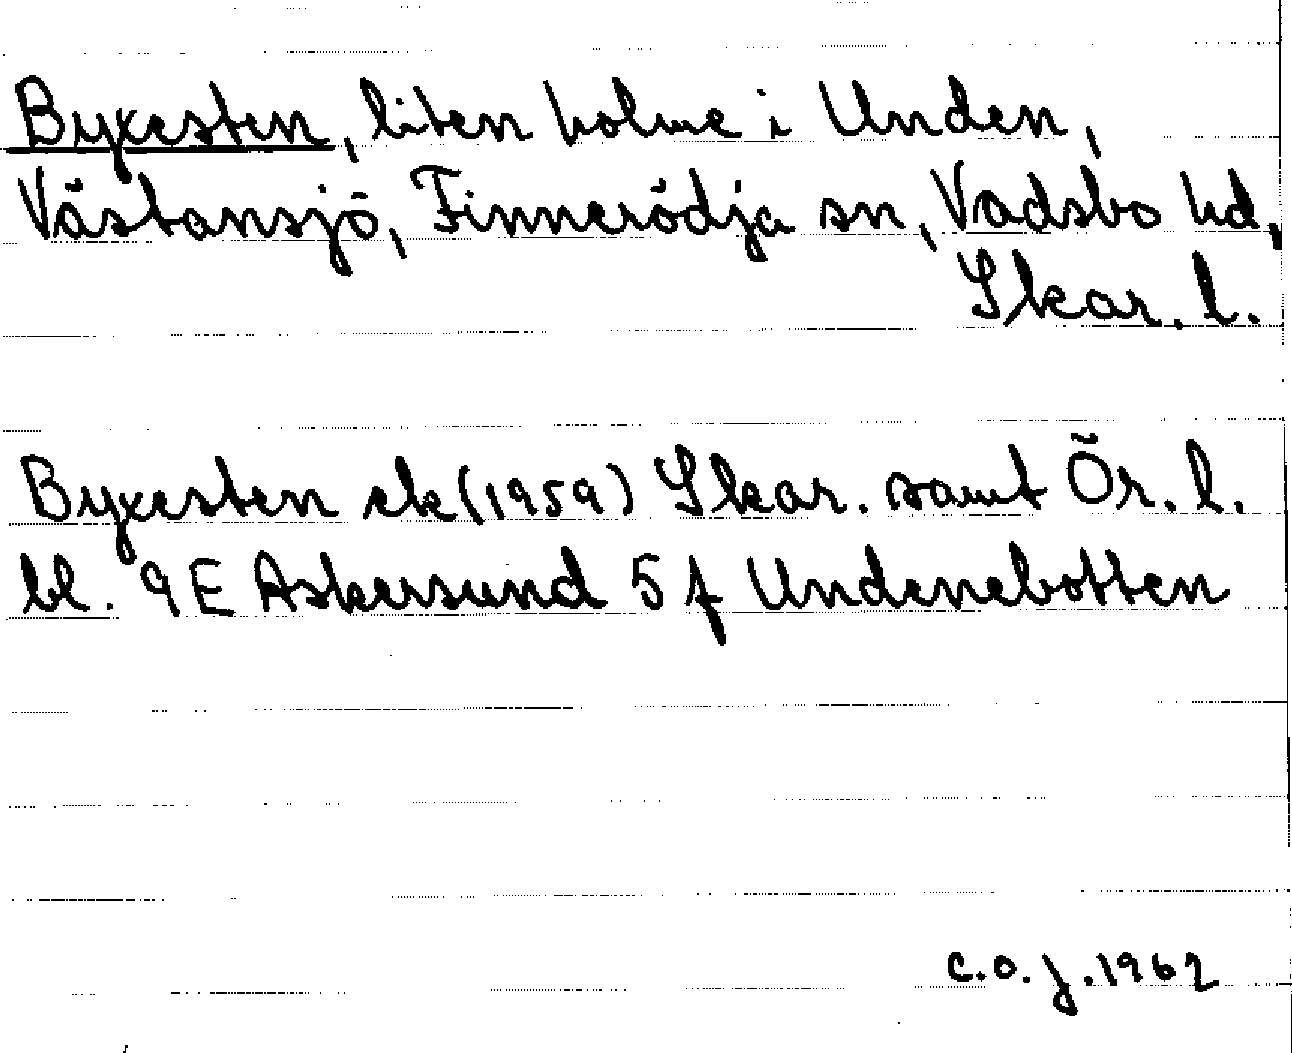 Byxesten, liten holme i Unden,
Västansjö, Finnerödja sn, Vadsbo hd,
Skar. l.
Byxesten ek (1959) Skar. samt Ör. l.
bl. 9E Askersund 5f Undenebotten
C.O.J. 1962